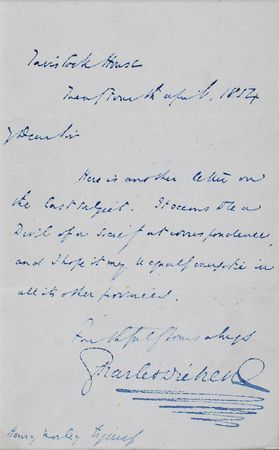 Tavistock House
Twenty Fourth April, 1854
My Dear Sir
Here is another letter on
the last subject. It seems to be a
Devil of a Society at correspondence,
and I hope it may be equally energetic in
all its other provinces.
Faithfully Yours always
Charles Dickens
Henry Morley Esquire